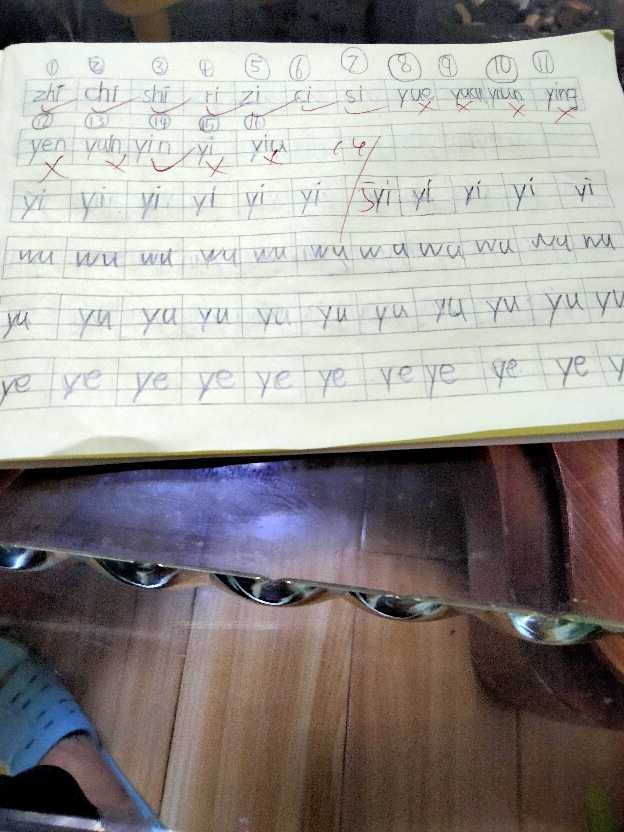 ① ② ③ ④ ⑤ ⑥ ⑦ ⑧ ⑨ ⑩ ⑪
zhi chi shi ri zi ci si yue yuan ying
⑫ ⑬ ⑭ ⑮ ⑯
yen yun yin yi yiu
yi yi yi yi yi yi 5yi yi yi yi yi
wu wu wu wu wu wu wu wu wu wu wu
yu yu yu yu yu yu yu yu yu yu yu
ye ye ye ye ye ye ye ye ye ye y